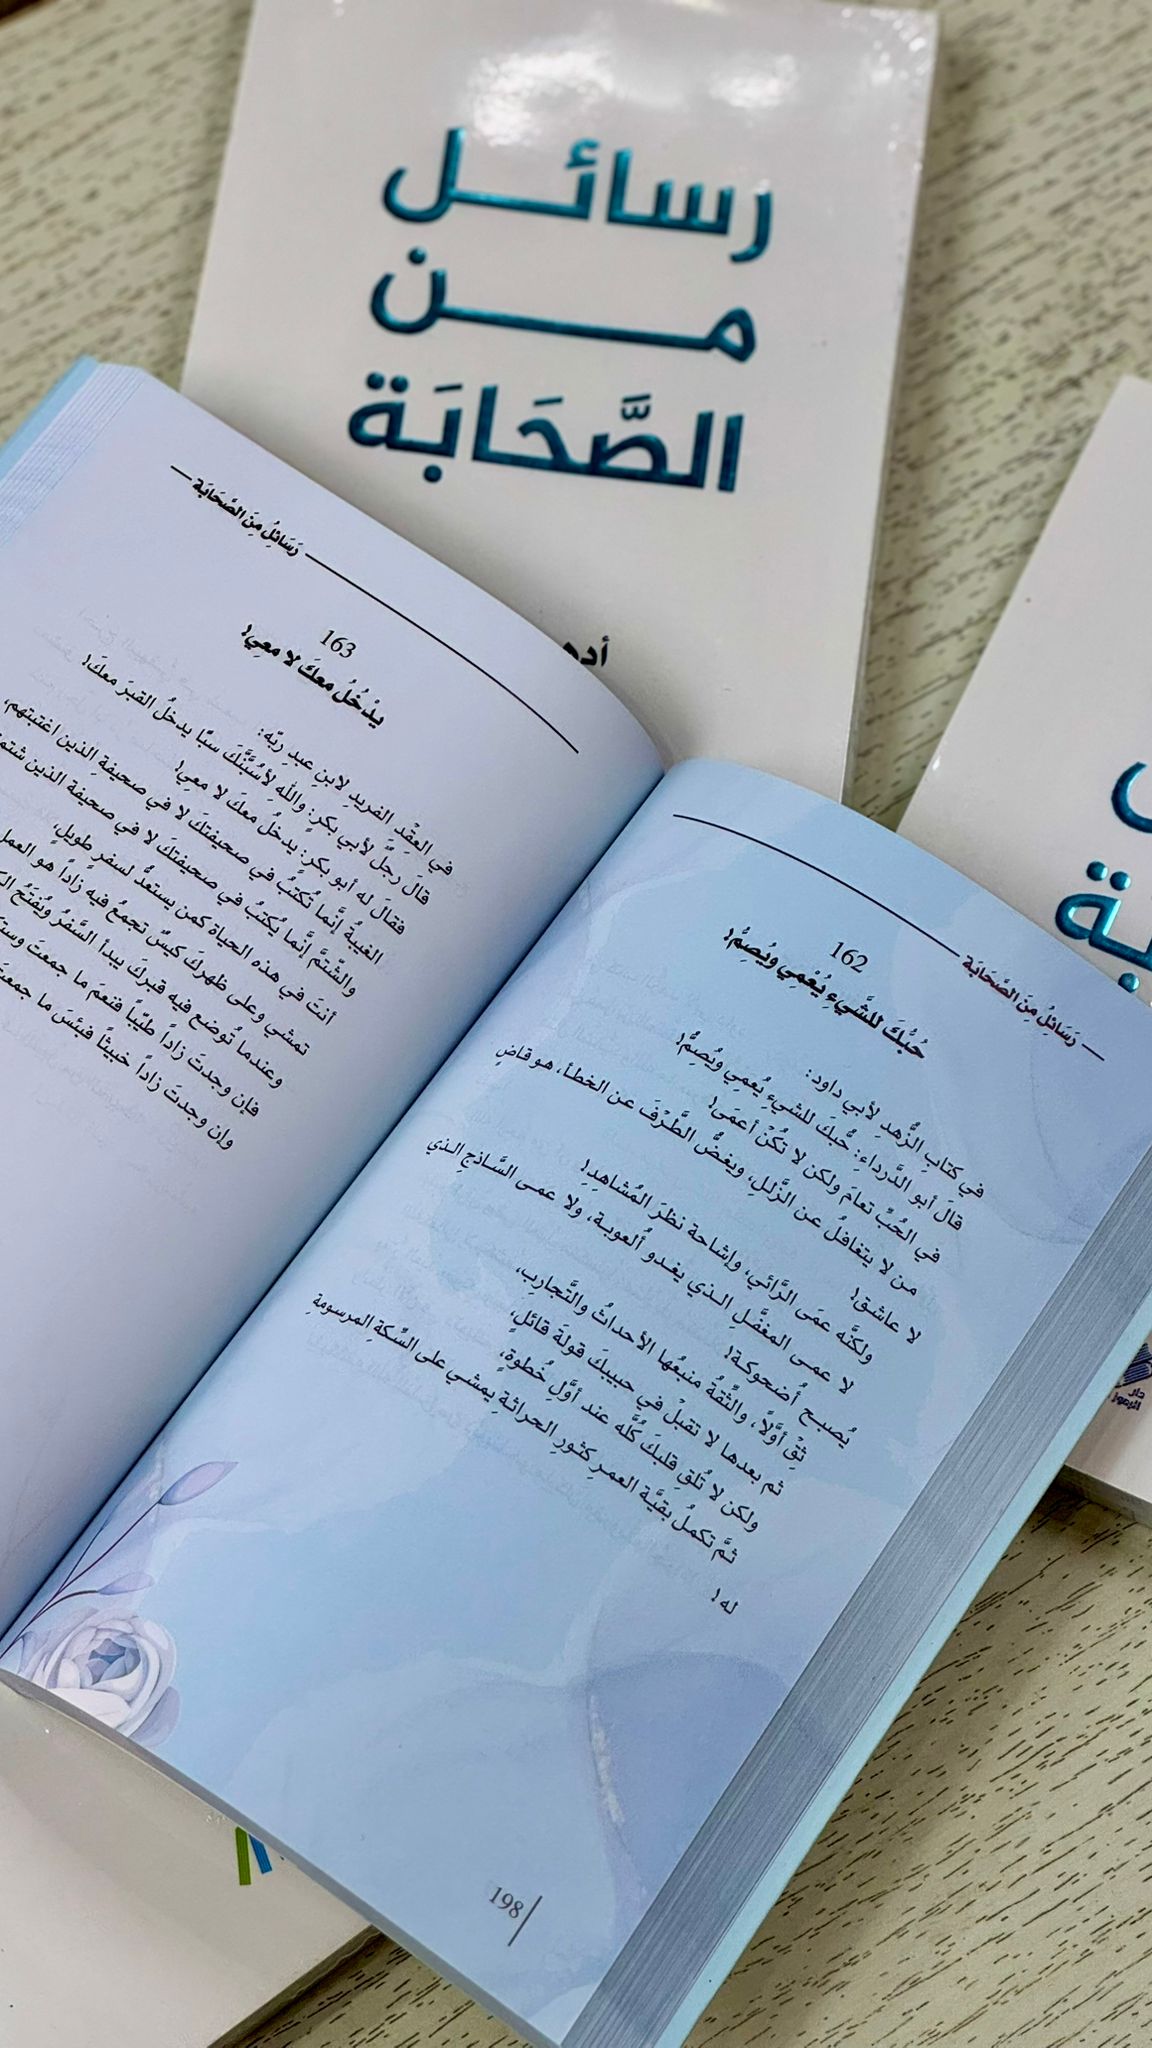 رسائل
من
الصَّحَابَة
أده
رَسَائِلُ مِنَ الصَّحَابَة
162
حُبُّكَ للشَّيءِ يُعْمِي ويُصِمُّ!
في كتابِ الزُّهدِ لأبي داود:
قالَ أبو الدَّرداءِ: حُبُّكَ للشيءِ يُعمِي ويُصِمُّ!
في الحُبِّ تعامَ ولكن لا تكُنْ أعمَى!
من لا يتغافلُ عن الزَّللِ، ويغضُّ الطَّرْفَ عن الخطأ، هو قاضٍ
لا عاشق!
ولكنَّه عمَى الرَّائي، وإشاحة نظرَ المُشاهِدِ!
لا عمى المغفَّلِ الذي يغدو ألعوبة، ولا عمى السَّاذجِ الذي
يُصبح أُضحوكة!
ثِقْ أوَّلاً، والثِّقةُ منبعُها الأحداثُ والتَّجارِب،
ثم بعدها لا تقبلْ في حبيبكَ قولةَ قائلٍ،
ولكن لا تُلقِ قلبكَ كُلَّه عند أوَّلِ خُطوةٍ،
ثمَّ تكملُ بقيَّة العمرِ كثورِ الحراثةِ يمشي على السِّكةِ المرسومةِ
له!
198
رَسَائِلُ مِنَ الصَّحَابَة
163
يدْخُلُ معكَ لا معِي!
في العِقْدِ الفريدِ لابنِ عبدِ ربّه:
قالَ رجلٌ لأبي بكرٍ: واللهِ لأسُبَّنَّكَ سبًّا يدخلُ القبرَ معكَ!
فقالَ له أبو بكرٍ: يدخلُ معكَ لا معِي!
الغيبةُ إنَّما تُكتبُ في صحيفتكَ لا في صحيفةِ الذين اغتبتهم،
والشَّتمُ إنَّما يُكتبُ في صحيفتكَ لا في صحيفة الذين
أنتَ في هذه الحياة كمن يستعدُّ لسفرٍ طويلٍ،
تمشي وعلى ظهركَ كيسٌ تجمعُ فيه زاداً هو العمل
وعندما تُوضع فيه قبركَ يبدأ السَّفرُ ويُفتَحُ
فإن وجدتَ زاداً طيّباً فنعمَ ما جمعتَ
وإن وجدتَ زاداً خبيثًا فبئسَ ما جمعتَ
بة
دار
الرموز